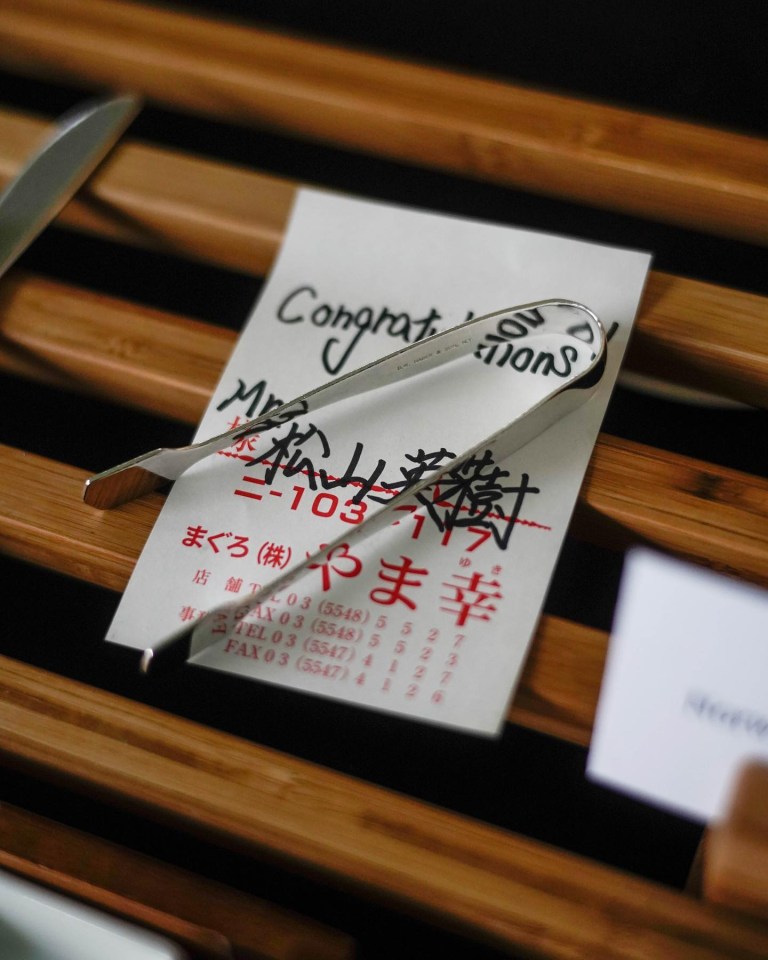 Congratulations
Mr. 松山英樹
様
ニ-103 -117
まぐろ (株) やま幸
ゆき
店 舗 TEL 03 (5548) 5 5 2 7
FAX 03 (5548) 5 5 2 5
TEL 03 (5547) 4 1 2 7
FAX 03 (5547) 4 1 2 6